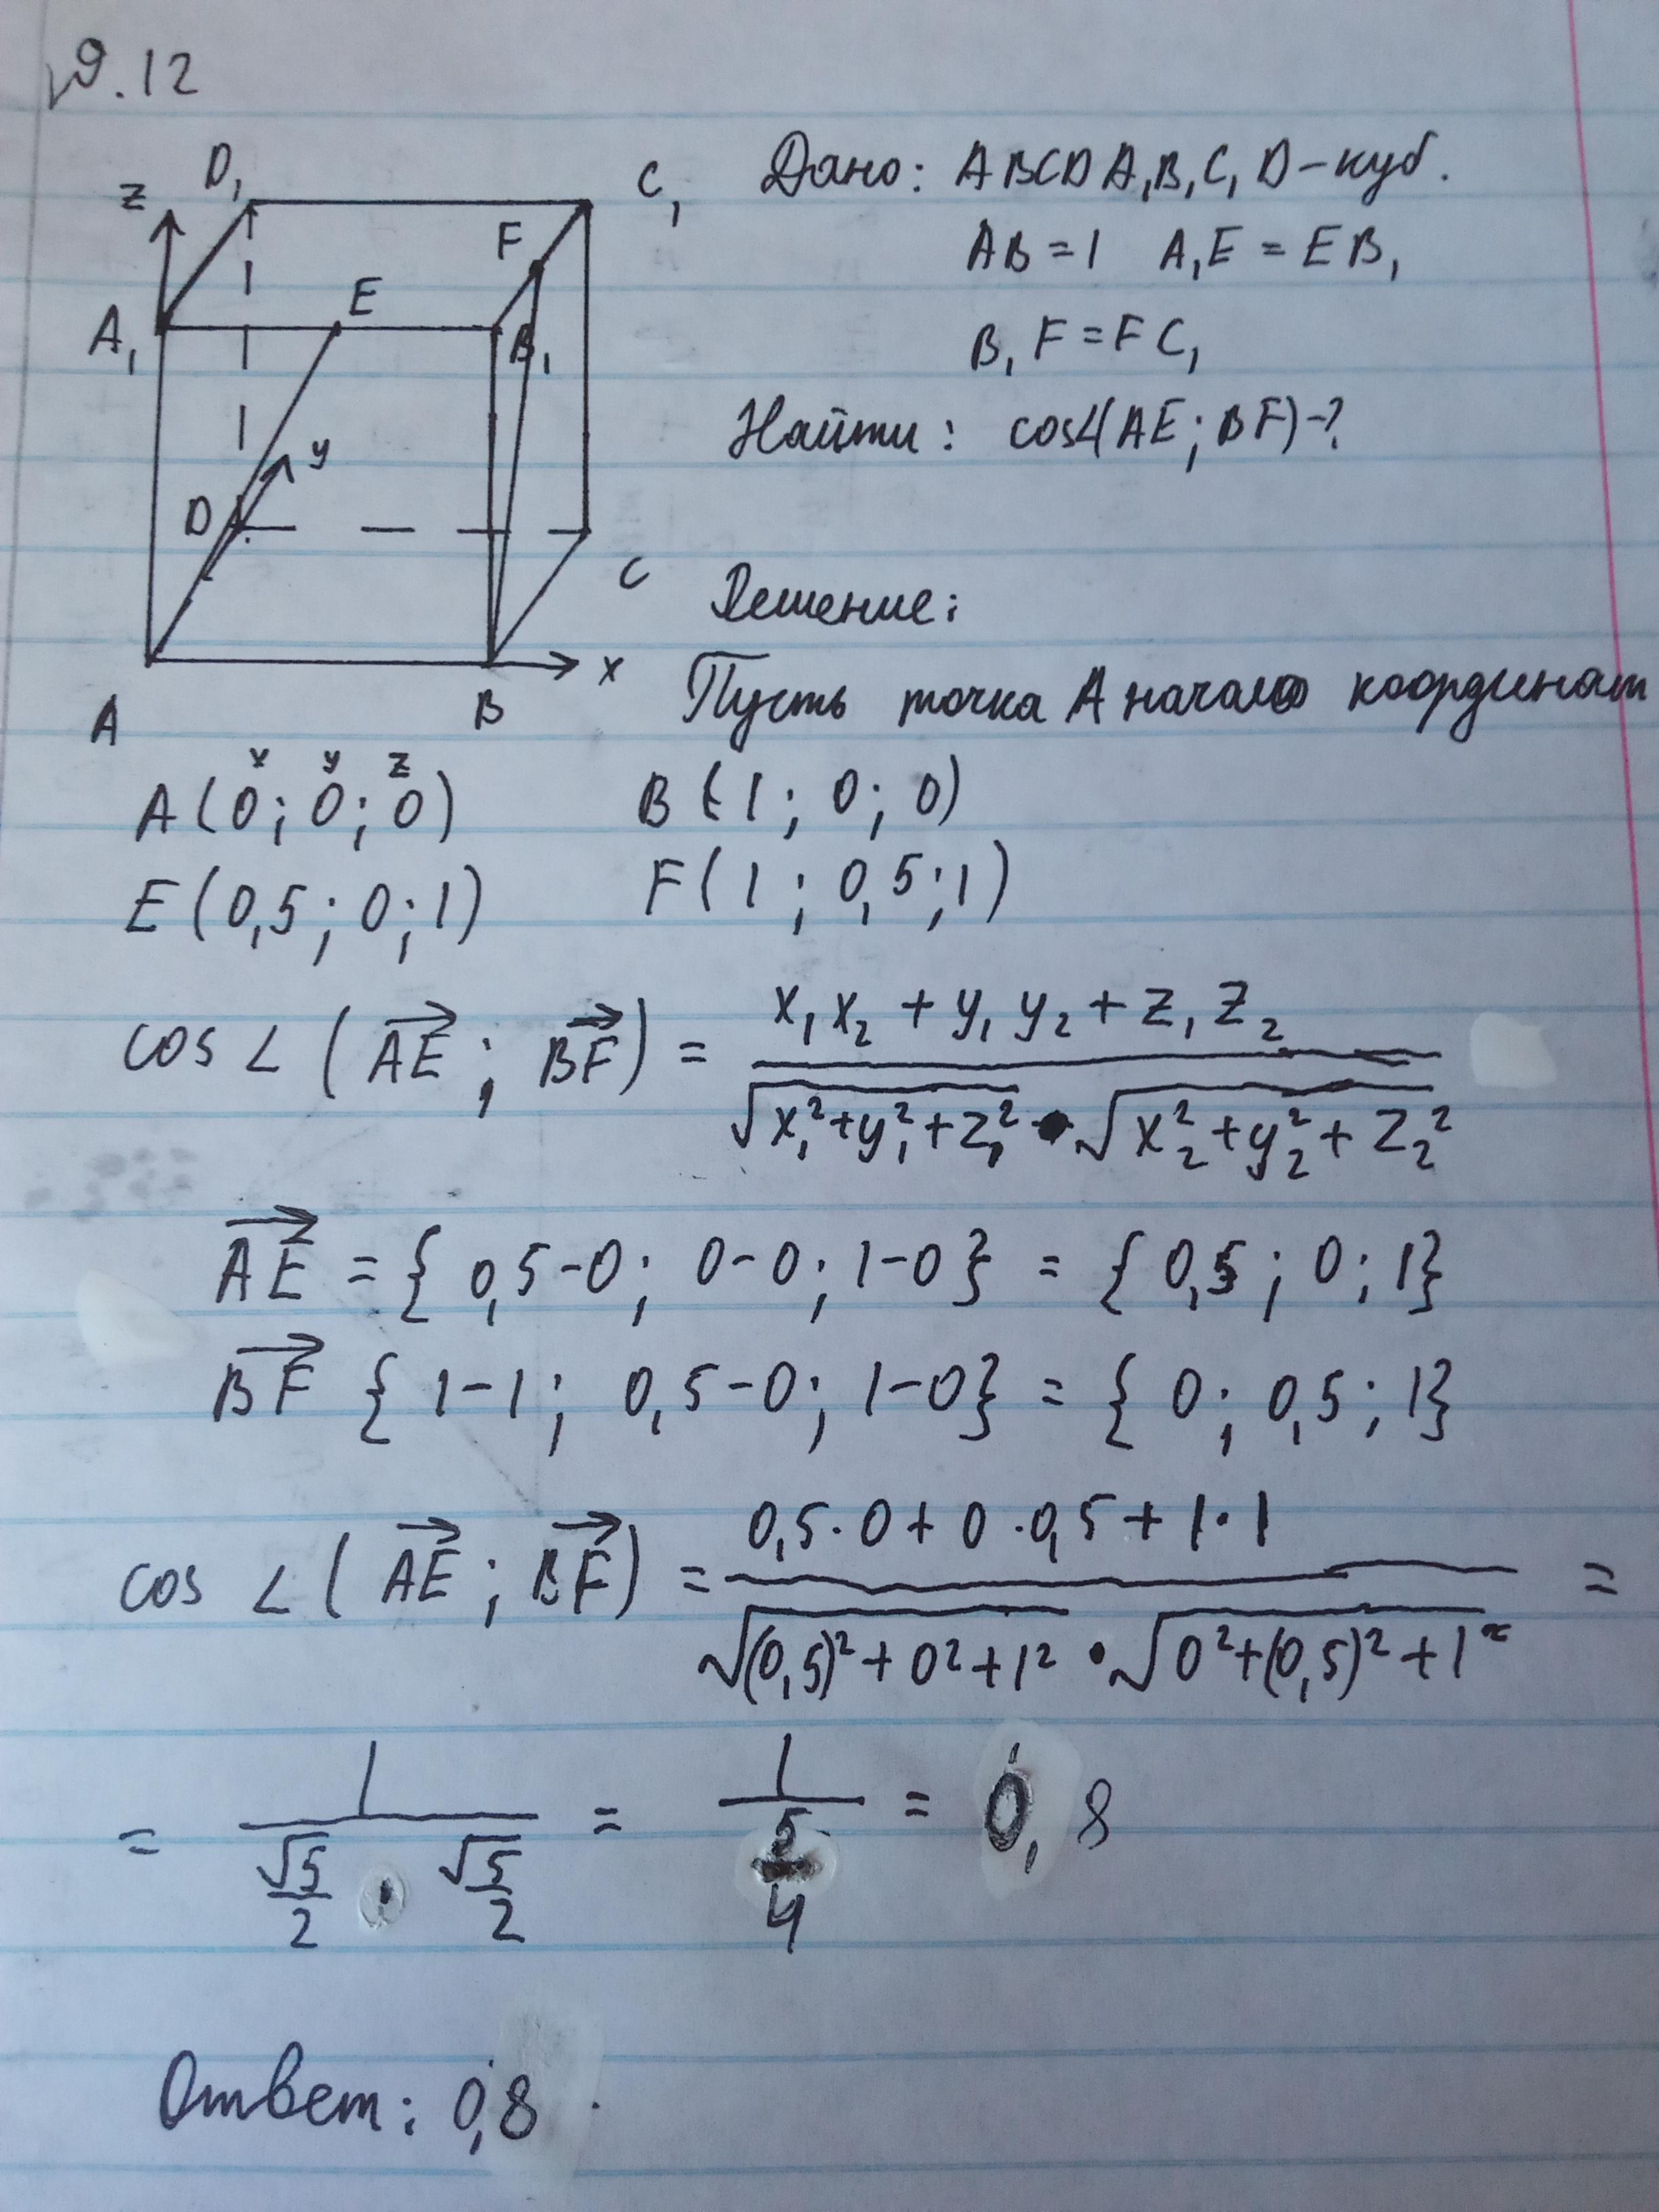 √9.12
Дано: ABCDA₁B₁C₁D – куб.
AB = 1   A₁E = EB₁
B₁F = FC₁
Найти: cos∠(AE; BF) – ?
z D₁ C₁
F
E
A₁ B₁
y
D
C
x
A B
Решение:
Пусть точка A начало координат
x y z
A(0; 0; 0)   B(1; 0; 0)
E(0,5; 0; 1)   F(1; 0,5; 1)
cos∠(AE→; BF→) = (x₁x₂ + y₁y₂ + z₁z₂) / (√(x₁² + y₁² + z₁²) • √(x₂² + y₂² + z₂²))
AE→ = {0,5-0; 0-0; 1-0} = {0,5; 0; 1}
BF→ {1-1; 0,5-0; 1-0} = {0; 0,5; 1}
cos∠(AE→; BF→) = (0,5·0 + 0·0,5 + 1·1) / (√((0,5)² + 0² + 1²) • √(0² + (0,5)² + 1²)) =
= 1 / (√5/2 · √5/2) = 1 / (5/4) = 0,8
Ответ: 0,8.